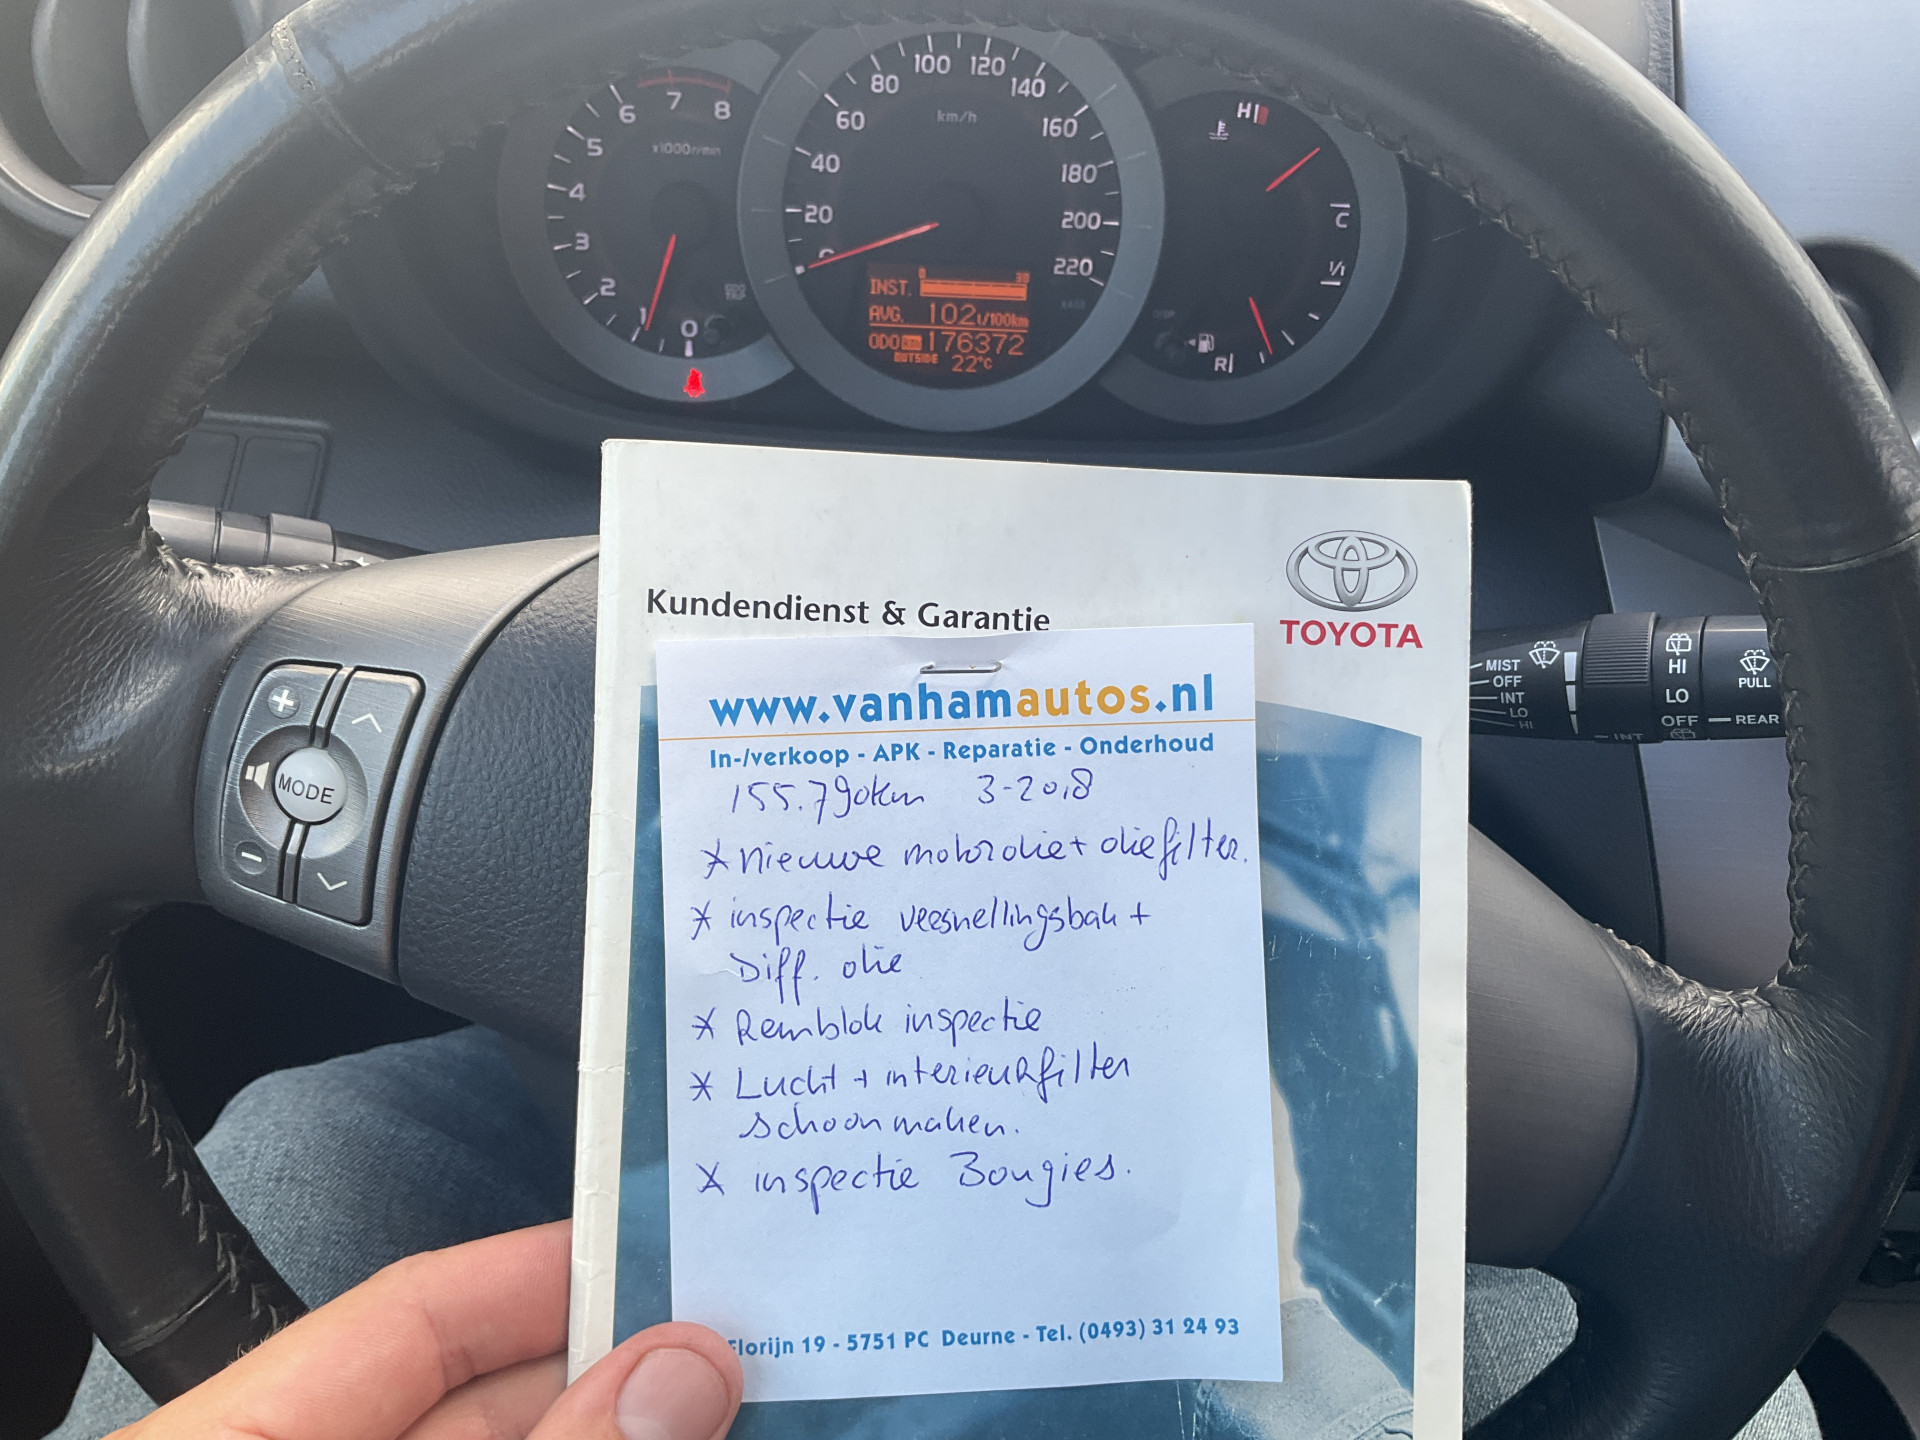 7
8
6
5
x1000r/min
4
3
2
1
0
100
120
80
140
60
km/h
160
40
180
20
200
0
220
0
30
INST.
AVG. 102 l/100km
ODO km 176372
OUTSIDE 22°C
H
C
1/1
R
Kundendienst & Garantie
TOYOTA
www.vanhamautos.nl
In-/verkoop - APK - Reparatie - Onderhoud
155.790km 3-2018
* nieuwe motorolie + oliefilter.
* inspectie versnellingsbak +
Diff. olie
* Remblok inspectie
* Lucht + interieurfilter
schoonmaken.
* inspectie Bougies.
Florijn 19 - 5751 PC Deurne - Tel. (0493) 31 24 93
+
MODE
−
MIST
OFF
INT
LO
HI
HI
LO
OFF
INT
REAR
PULL